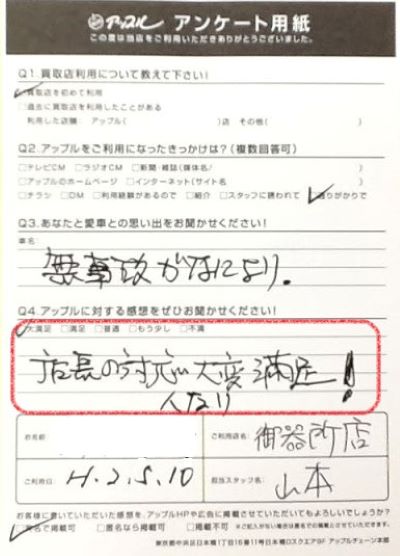 アップル アンケート用紙
この度は当店をご利用いただきありがとうございました。
Q1.買取店利用について教えて下さい!
買取店を初めて利用
□過去に買取店を利用したことがある
利用した店舗: アップル( )店 その他( )
Q2.アップルをご利用になったきっかけは?(複数回答可)
□テレビCM □ラジオCM □新聞・雑誌(媒体名/ )
□アップルのホームページ □インターネット(サイト名 )
□チラシ □DM □利用経験があるので □紹介 □スタッフに誘われて 通りがかりで
Q3.あなたと愛車との思い出をお聞かせください!
車名
無事故がなにより.
Q4.アップルに対する感想をぜひお聞かせください!
大満足 □満足 □普通 □もう少し □不満
店長の対応大変満足!
人なり
お名前
ご利用店名: 御器所店
ご利用日 H.2.5.10
担当スタッフ名: 山本
お客様に書いていただいた感想を、アップルHPや広告に掲載させていただいてもよろしいでしょうか?
実名で掲載可 □匿名なら掲載可 □掲載不可 ※ご記入がない場合は匿名での掲載とさせていただきます。
東京都中央区日本橋1丁目16番11号日本橋Dスクエア9F アップルチェーン本部